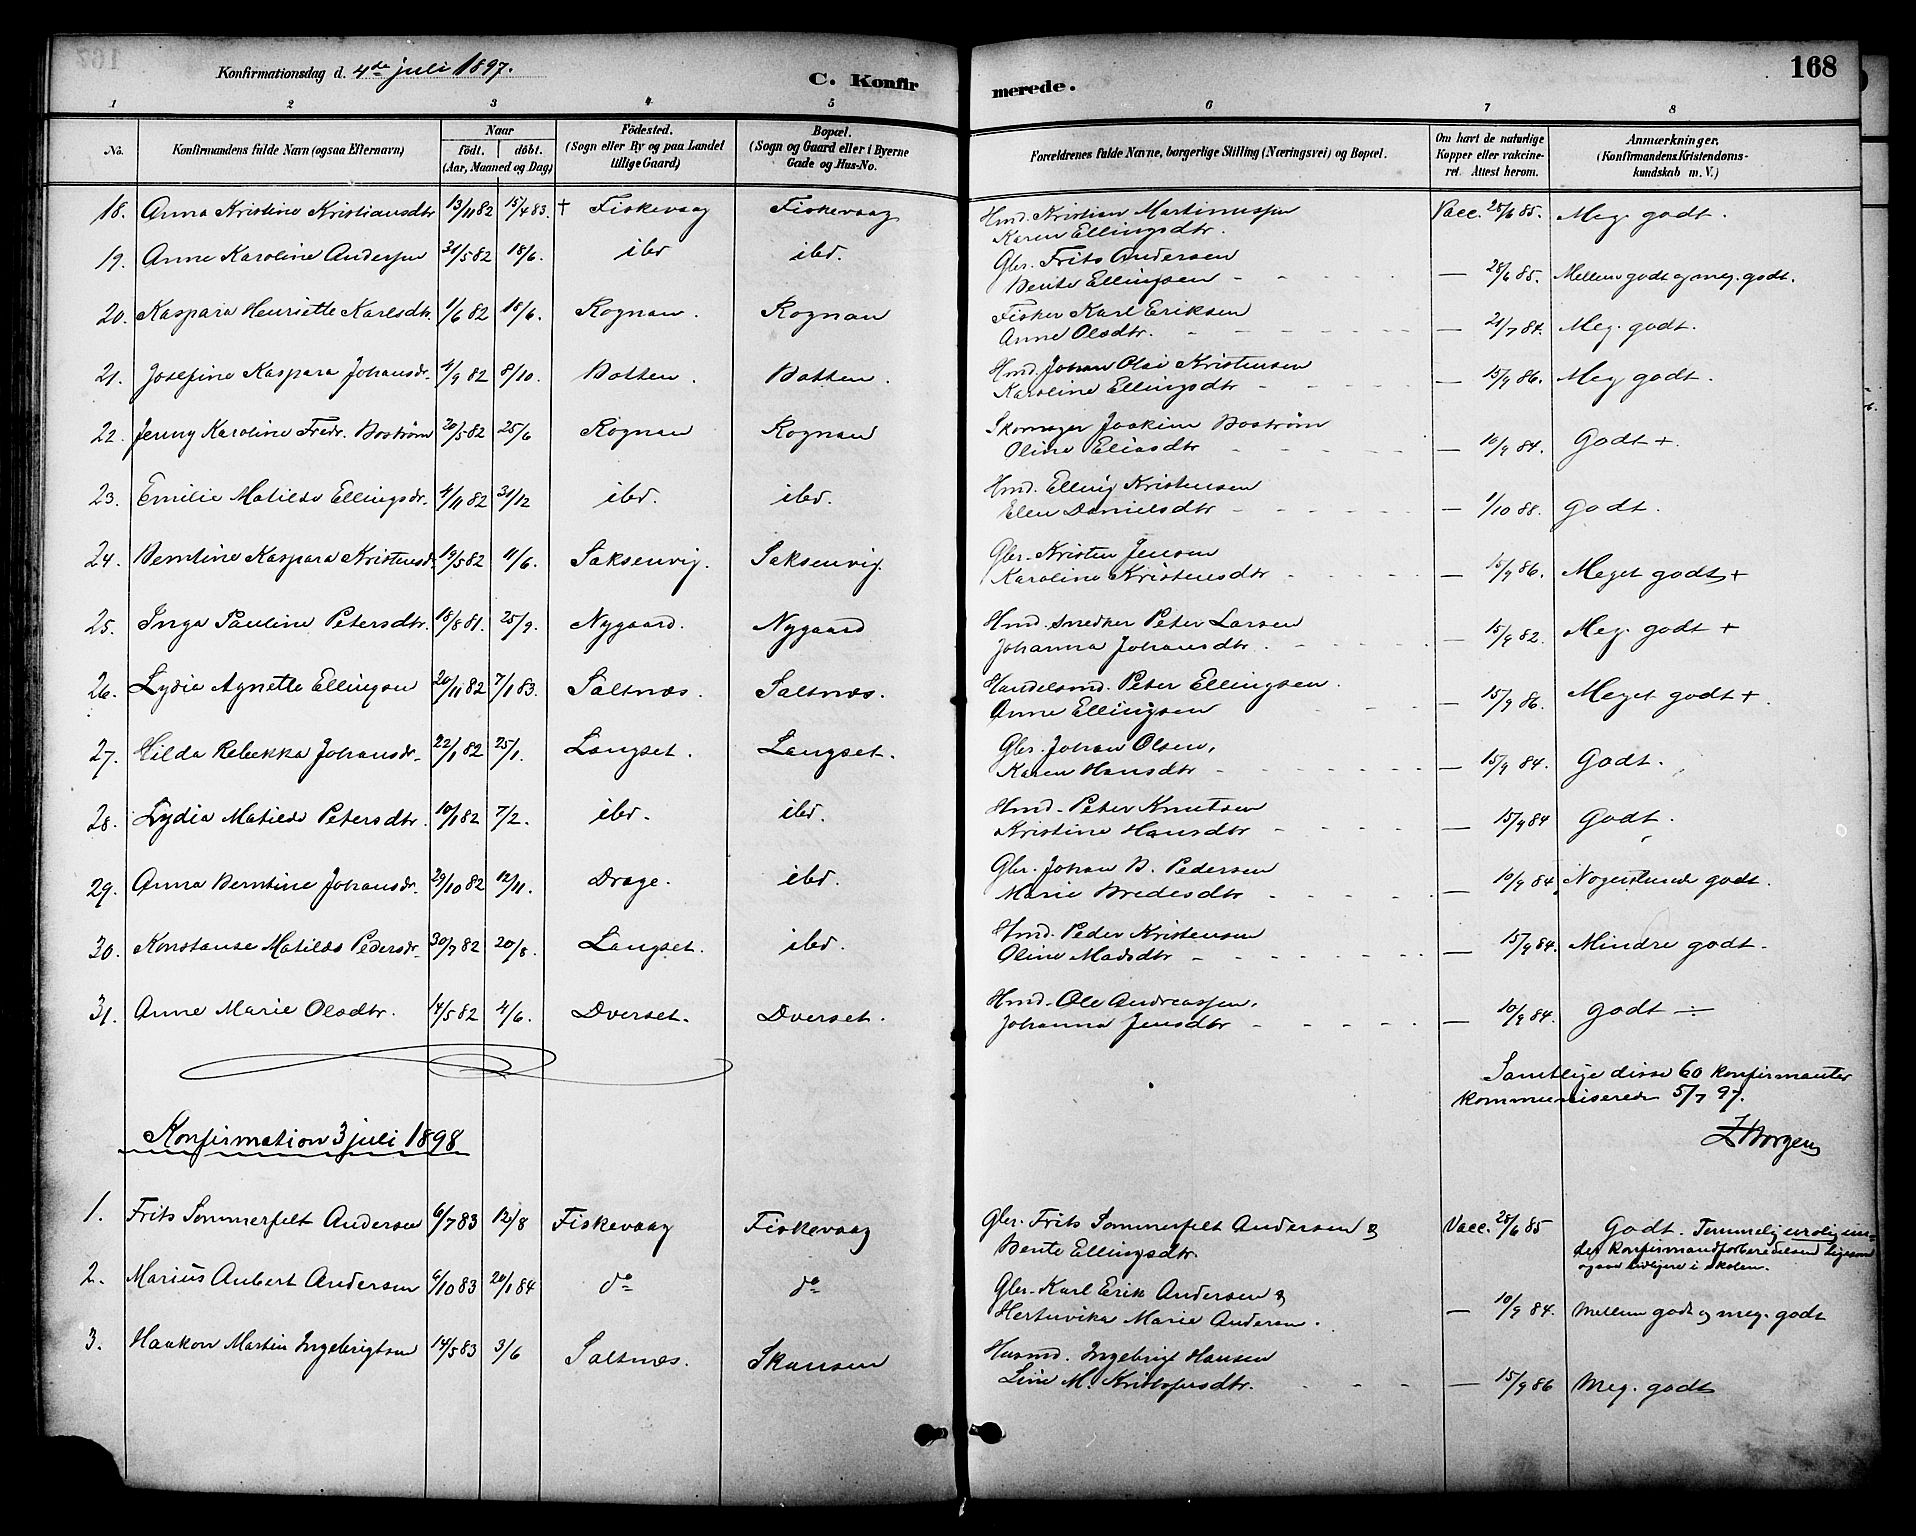 Konfirmationsdag d. 4de juli 1897.
C. Konfirmerede.
168
1 2 3 4 5 6 7 8
No.
Konfirmandens fulde Navn (ogsaa Efternavn)
Naar
födt. döbt.
(Aar, Maaned og Dag)
Födested.
(Sogn eller By og paa Landet
tillige Gaard)
Bopæl.
(Sogn og Gaard eller i Byerne
Gade og Hus-No.
Forældrenes fulde Navne, borgerlige Stilling (Næringsvei) og Bopæl.
Om havt de naturlige
Kopper eller vakcine-
ret. Attest herom.
Anmærkninger.
(Konfirmandens Kristendoms-
kundskab m. V.)
18. Anna Kristine Kristiansdtr 13/11 82 15/4 83. + Fiskevaag Fiskevaag Hmd. Kristian Martinussen Vacc. 28/6 85. Meg. godt.
Karen Ellingsdtr.
19. Anne Karoline Andersen 31/5 82 18/6. ibd ibd. Gbr. Frits Andersen
Bente Ellingsen — 28/6 85. Mellem godt og meg. godt.
20. Kaspara Henriette Karlsdtr. 1/6 82 18/6. Rognan. Rognan Fisker Karl Eriksen
Anne Olsdtr. — 21/7 84. Meg. godt.
21. Josefine Kaspara Johansdr. 4/9 82 8/10. Botten. Botten. Hmd. Johan Olai Kristensen
Karoline Ellingsdtr — 15/9 86. Meg. godt.
22. Jenny Karoline Fredr. Boström 20/5 82 25/6 Rognan Rognan Skomager Joakim Boström
Oline Eliasdtr — 10/9 84. Godt +.
23. Emilie Matilde Ellingsdr. 4/11 82 31/12 ibd. ibd. Hmd. Elling Kristensen
Elen Danielsdtr — 1/10 88. Godt.
24. Berntine Kaspara Kristensdr. 19/5 82 11/6. Saksenvig. Saksenvig. Gbr. Kristen Jensen
Karoline Kristensdtr — 15/9 86. Meget godt +
25. Inga Pauline Petersdtr. 18/8 81. 25/9. Nygaard. Nygaard Hmd. snedker Peter Larsen
Johanna Johansdtr. — 15/9 82. Meg. godt +
26. Lydia Agnette Ellingsen 20/11 82 7/1 83. Saltnæs. Saltnæs. Handelsmd. Peter Ellingsen.
Anne Ellingsen — 15/9 86. Meget godt +.
27. Hilda Rebekka Johansdr. 22/1 82 25/1. Langset. Langset. Gbr. Johan Olsen,
Karen Hansdtr — 15/9 84. Godt.
28. Lydia Matilde Petersdtr. 10/1 82 7/2. ibd. ibd. Hmd. Peter Knutsen
Kristine Hansdtr — 15/9 84 Godt.
29. Anna Berntine Johansdr. 29/10 82 12/11. Drage. ibd. Gbr. Johan B. Pedersen
Marie Bredesdtr — 10/9 84. Nogenlunde godt.
30. Konstanse Matilde Pedersdr. 30/7 82 20/8. Langset. ibd. Hmd. Peder Kristensen
Oline Madsdtr — 15/9 84. Mindre godt.
31. Anne Marie Olsdtr. 14/5 82 4/6. Dverset. Dverset. Hmd. Ole Andreassen,
Johanna Jensdtr — 10/9 84. godt ÷
Samtlige disse 60 konfirmanter
kommuniserede 5/7 97.
Borgen
Konfirmation 3 juli 1898
1. Frits Sommerfelt Andersen 6/7 83 12/8 Fiskevaag Fiskevaag Gbr. Frits Sommerfelt Andersen & Vacc. 28/6 85 Godt. Temmelig urolig un-
Bente Ellingsdtr. der konfirmandforberedelsen ligesom
ogsaa tidligere i skolen.
2. Marius Aubert Andersen 6/10 83 20/1 84 do do Gbr. Karl Erik Andersen &
Marie Andersen. — 10/9 84. Mellem godt og meg. godt
3. Haakon Martin Ingebrigtsen 14/5 83 3/6 Saltnæs. Skansen Husmd. Ingebrigt Hansen
Line M. Kristofersdtr. — 15/9 86 Meg. godt